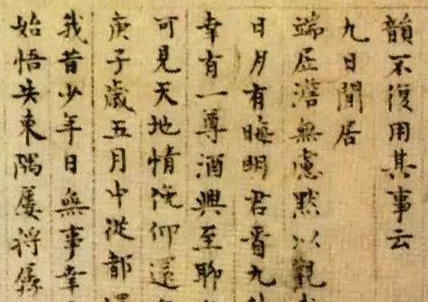 韻不復用其事云
九日間居
端居澹無慮默以觀
日月有晦明君看九
幸有一尊酒興至聊
可見天地情俛仰還
庚子歲五月中從都還
我昔少年日無事幸
始悟失東隅屢將